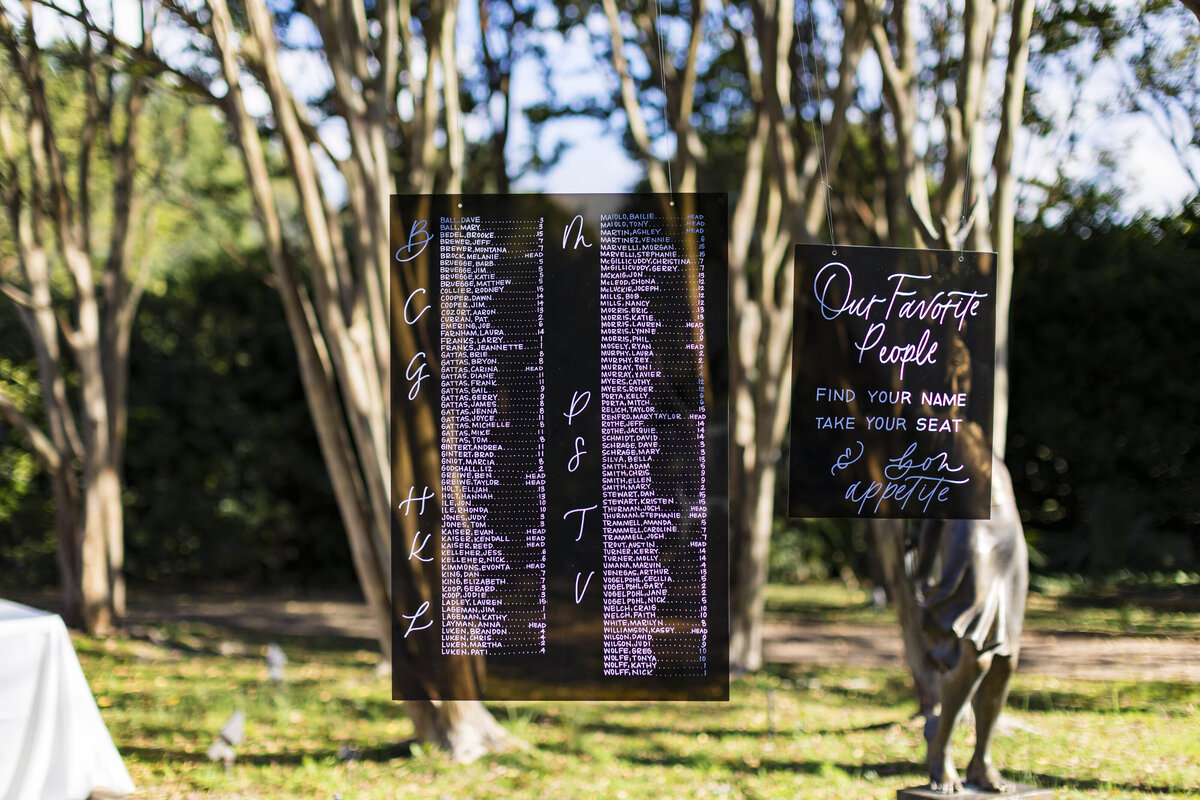 B
BALL, DAVE 3
BALL, MARY 3
BEDEL, BROOKE 15
BREWER, JEFF 7
BREWER, MONTANA 7
BROCK, MELANIE HEAD
BRUEGGE, BARB 5
BRUEGGE, JIM 5
BRUEGGE, KATIE 5
BRUEGGE, MATTHEW 5
C
COLLIER, RODNEY 15
COOPER, DAWN 14
COOPER, JIM 14
COZORT, AARON 13
CURRAN, PAT 2
EMERING, JOE 6
FARNHAM, LAURA 14
FRANKS, LARRY 1
FRANKS, JEANNETTE 1
G
GATTAS, BRIE 8
GATTAS, BRYON 8
GATTAS, CARINA HEAD
GATTAS, DIANE 11
GATTAS, FRANK 11
GATTAS, GAIL 9
GATTAS, GERRY 9
GATTAS, JAMES 8
GATTAS, JENNA 8
GATTAS, JOYCE 11
GATTAS, MICHELLE 8
GATTAS, MIKE 11
GATTAS, TOM 8
GINTERT, ANDREA
GNIOT, MARCIA 8
GODSHALL, LIZ 2
GREIWE, BEN HEAD
GREIWE, TAYLOR HEAD
H
HOLT, ELIJAH 13
HOLT, HANNAH 13
ILE, JON 10
ILE, RHONDA 10
JONES, JUDY 3
JONES, TOM 3
K
KAISER, EVAN HEAD
KAISER, KENDALL HEAD
KAISER, REED HEAD
KELLEHER, JESS 6
KELLEHER, NICK 6
KIMMONS, EVONTA HEAD
KING, DAN 7
KING, ELIZABETH 7
KOOP, GERARD 3
KOOP, JODIE 3
L
LADLEY, LAUREN 15
LAGEMAN, JIM 1
LAGEMAN, KATHY 1
LAYMAN, ANNA HEAD
LUKEN, BRANDON 4
LUKEN, CHRIS 4
LUKEN, MARTHA 4
LUKEN, PATI 4
M
MAIOLO, BAILIE HEAD
MAIOLO, TONY HEAD
MARTIN, ASHLEY HEAD
MARTINEZ, VENNIE 6
MARVELLI, MORGAN 15
MARVELLI, STEPHANIE 15
McGILLICUDDY, CHRISTINA 7
McGILLICUDDY, GERRY 7
McKAIG, JON 13
McLEOD, SHONA 12
McLUCKIE, JOSEPH 12
MILLS, BOB 12
MILLS, NANCY 12
MORRIS, ERIC 13
MORRIS, KATIE 13
MORRIS, LAUREN HEAD
MORRIS, LYNNE 9
MORRIS, PHIL 9
MOSELY, RYAN HEAD
MURPHY, LAURA 2
MURPHY, REY 2
MURRAY, TONI 2
MURRAY, XAVIER 2
MYERS, CATHY 12
MYERS, ROGER 12
P
PORTA, KELLY 6
PORTA, MITCH 6
RELICH, TAYLOR 15
RENFRO, MARY TAYLOR HEAD
ROTHE, JEFF 14
ROTHE, JACQUIE 14
S
SCHMIDT, DAVID
SCHRAGE, DAVE 3
SCHRAGE, MARY 3
SILVA, BELLA 13
SMITH, ADAM
SMITH, CHRIS 9
SMITH, ELLEN 9
SMITH, MARY
STEWART, DAN 15
STEWART, KRISTEN 15
T
THURMAN, JOSH HEAD
THURMAN, STEPHANIE HEAD
TRAMMELL, AMANDA 5
TRAMMELL, CAROLINE 7
TRAMMELL, JOSH
TROUT, AUSTIN HEAD
TURNER, KERRY 14
TURNER, MOLLY 14
UMANA, MARVIN 4
V
VENEGAS, ARTHUR 13
VOGELPOHL, CECILIA 5
VOGELPOHL, GARY 2
VOGELPOHL, JANE 2
VOGELPOHL, NICK 5
WELCH, CRAIG 10
WELCH, FAITH 10
WHITE, MARILYN 8
WILLIAMSON, KASEY HEAD
WILSON, DAVID 9
WILSON, JUDI 9
WOLFE, GREG 10
WOLFE, TONYA 10
WOLFF, KATHY 1
WOLFF, NICK 1
Our Favorite
People
FIND YOUR NAME
TAKE YOUR SEAT
& bon
appetite